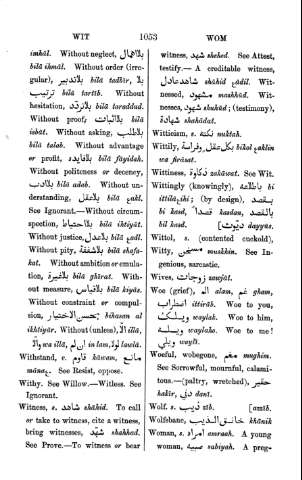 WIT 1053 WOM
imhāl. Without neglect, بلااهمال
bilā ihmāl. Without order (irre-
gular), بلاتدبير bilā tadbīr, بلا
ترتيب bilā tartīb. Without
hesitation, بلاتردّد bilā taraddud.
Without proof, بلااثبات bilā
isbāt. Without asking, بلاطلب
bilā talab. Without advantage
or profit, بلافايده bilā fāyidah.
Without politeness or decency,
بلاادب bilā adab. Without un-
derstanding, بلاعقل bilā ɛakl.
See Ignorant.—Without circum-
spection, بلااحتياط bilā ihtiyāt.
Without justice, بلاعدل bilā ɛadl.
Without pity, بلاشفقة bilā shafa-
kat. Without ambition or emula-
tion, بلاغيرة bilā ghīrat. With-
out measure, بلاقياس bilā kiyās.
Without constraint or compul-
sion, بحسن الاختيار bihasan al
ikhtiyār. Without (unless), الّا illā,
والّا wa illā, ان لم in lam, لولا lawlā.
Withstand, v. قاوم kāwam, مانع
mānaɛ. See Resist, oppose.
Withy. See Willow.—Witless. See
Ignorant.
Witness, s. شاهد shāhid. To call
or take to witness, cite a witness,
bring witnesses, شهّد shahhad.
See Prove.—To witness or bear
witness, شهد shehed. See Attest,
testify.— A creditable witness,
شاهد عادل shāhid ɛādil. Wit-
nessed, مشهود mashhūd. Wit-
nesses, شهود shuhūd; (testimony),
شهادة shahādat.
Witticism, s. نكته nuktah.
Wittily, بكل عقل وفراسة bikol ɛaklin
wa firāsat.
Wittiness, ذكاوة zakāwat. See Wit.
Wittingly (knowingly), باطلاعه bi
ittilāɛihi; (by design), بقصد
bi kasd, قصداً kasdan, بالقصد
bil kasd. [ديوث dayyūs.
Wittol, s. (contented cuckold),
Witty, مسكين muskkin. See In-
genious, sarcastic.
Wives, زوجات zawjāt.
Woe (grief), الم alam, غم gham,
اضطراب ittirāb. Woe to you,
ويلك waylak. Woe to him,
ويله waylaho. Woe to me!
ويلي waylī.
Woeful, wobegone, مغم mughim.
See Sorrowful, mournful, calami-
tous.—(paltry, wretched), حقير
hakīr, دني danī.
Wolf. s. ذيب zīb. [anīb.
Wolfsbane, خانق الذيب khānik
Woman, s. امراه amraah. A young
woman, صبيه sabiyah. A preg-